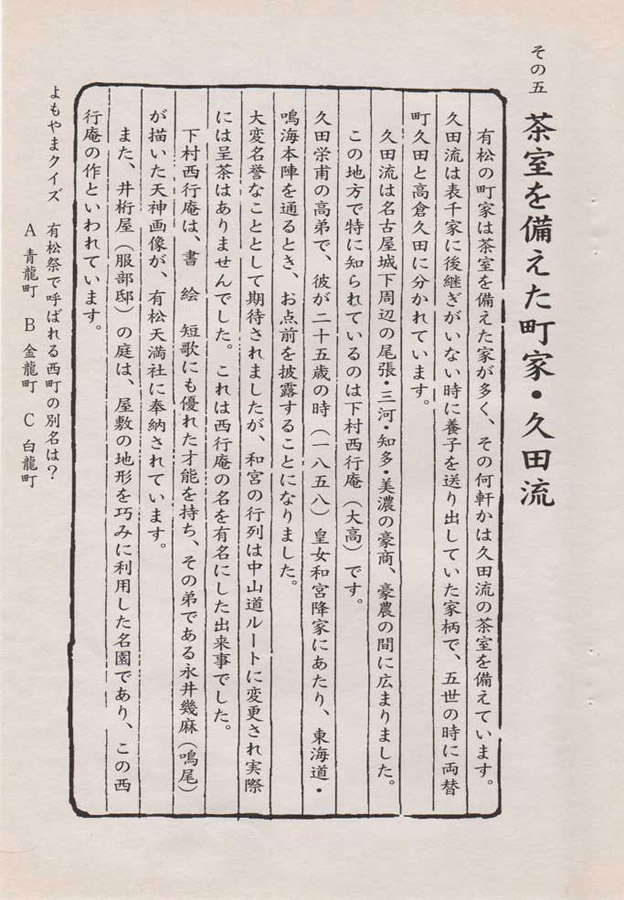 その五 茶室を備えた町家・久田流
有松の町家は茶室を備えた家が多く、その何軒かは久田流の茶室を備えています。
久田流は表千家に後継ぎがいない時に養子を送り出していた家柄で、五世の時に両替
町久田と高倉久田に分かれています。
久田流は名古屋城下周辺の尾張・三河・知多・美濃の豪商、豪農の間に広まりました。
この地方で特に知られているのは下村西行庵(大高)です。
久田栄甫の高弟で、彼が二十五歳の時(一八五八)皇女和宮降家にあたり、東海道・
鳴海本陣を通るとき、お点前を披露することになりました。
大変名誉なこととして期待されましたが、和宮の行列は中山道ルートに変更され実際
には呈茶はありませんでした。これは西行庵の名を有名にした出来事でした。
下村西行庵は、書 絵 短歌にも優れた才能を持ち、その弟である永井幾麻(鳴尾)
が描いた天神画像が、有松天満社に奉納されています。
また、井桁屋(服部邸)の庭は、屋敷の地形を巧みに利用した名園であり、この西
行庵の作といわれています。
よもやまクイズ 有松祭で呼ばれる西町の別名は?
A 青龍町 B 金龍町 C 白龍町